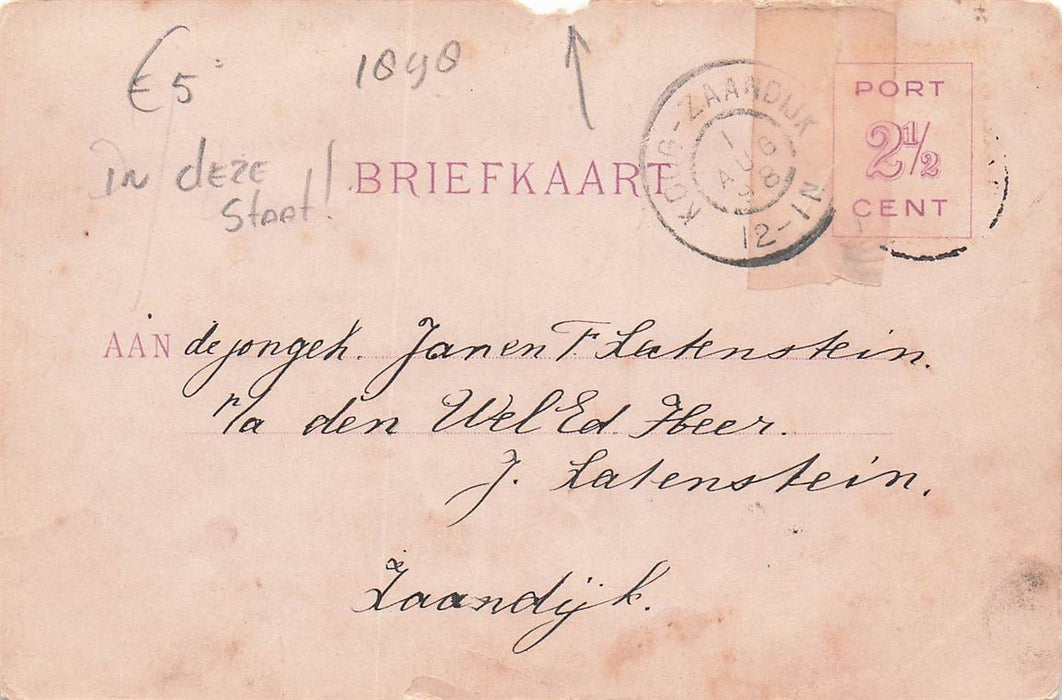 € 5
1898
In deze
staat!
BRIEFKAART
KOOG-ZAANDIJK
16
AU
98
12-1N
PORT
2½
CENT
AAN de jongeh. Jan en F. Latenstein.
p/a den Wel Ed. Heer.
J. Latenstein.
Zaandijk.